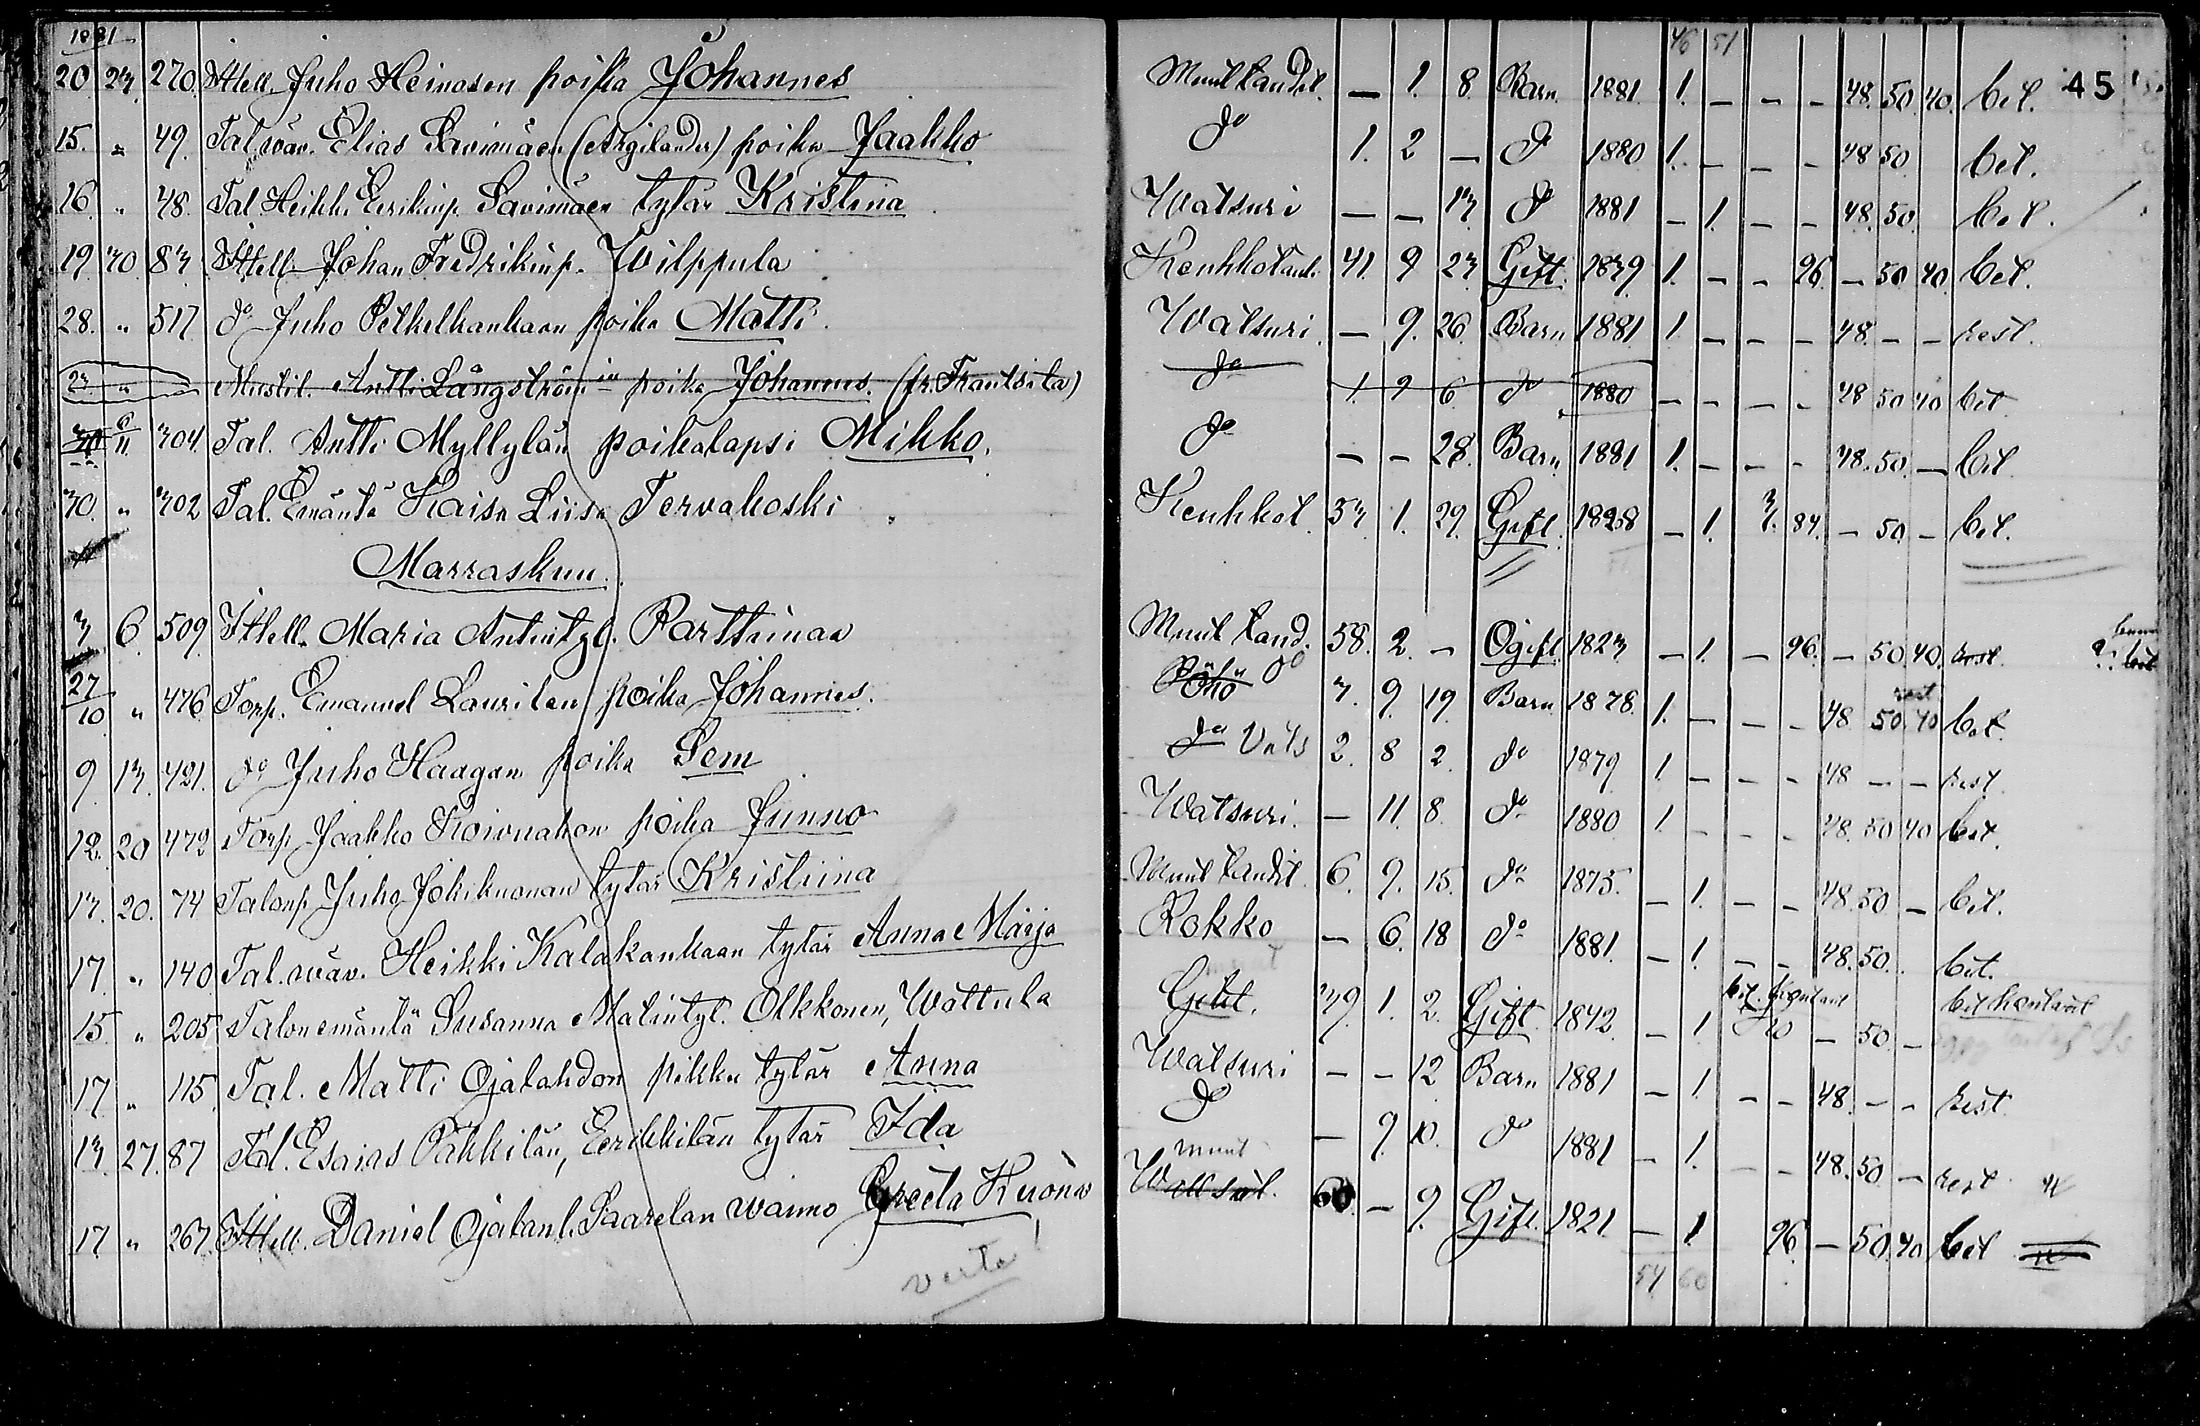 1881 46 51
20. 23. 270. Ittell. Juho Heinosen poika Johannes Muut taudit. — 1. 8. Barn. 1881. 1. — — — 48. 50. 40. bet. 45
15. " 49. Tal. wäv. Elias Savimäen (Argilander) poika Jaakko do 1. 2 — do 1880 1. — — — 48 50 bet.
16. " 48. Tal Heikki Eerikinp. Savimäen tytär Kristina Watsuri — — 13 do 1881 — 1. — — 48. 50. bet.
19. 30. 83. Ittell. Johan Fredrikinp. Wilppula Keuhkotaud. 41. 9 23. Gift. 1839 1. — — 96. — 50 40. bet.
28. " 517 do Juho Petkelkankaan poika Matti. Watsuri. — 9. 26. Barn 1881 1. — — — 48. — — rest.
23. " Mustil. Antti Långström in poika Johannes. (fr. Frantsila) do 1. 9 6. do 1880 — — — — 48 50 40 bet
30 6/11 304. Tal. Antti Myllylän poikalapsi Mikko. do — — 28. Barn 1881 1. — — — 48. 50. — bet.
30. " 302 Tal. Emäntä Kaisa Liisa Tervakoski Keuhkot. 53. 1. 29. Gift. 1828 — 1. 3/4. 84. — 50. — bet.
Marraskuu.
3 6. 509. Ittell. Maria Antintyt. Parttinaa Muut taud. 58. 2. — Ogift. 1823 — 1. — 96. — 50. 40. rest.
27/10 " 476 Torp. Emanuel Laurilan poika Johannes. do 3. 9. 19. Barn. 1878. 1. — — — 48 50. 40 rest bet
9. 13. 421. do Juho Haagan poika Sem do Vats 2. 8 2. do 1879 1 — — — 48 — — rest.
12. 20 472 Torp. Jaakko Koivuahon poika Junno Watsuri. — 11. 8. do 1880 1. — — — 48. 50 40 bet.
13. 20. 74 Talonp. Juho Jokikuonan tytär Kristiina Muut taudit. 6. 9. 15. do 1875. — 1. — — 48. 50 — bet.
17. " 140 Tal. wäv. Heikki Kalakankaan tytär Anna Maija Rokko — 6. 18 do 1881. — 1. — — 48. 50. bet.
15 " 205 Talonemäntä Susanna Matintyt. Olkkonen, Wattula 39. 1. 2. Gift. 1842. — 1 bet. kontant — 50. — bet kontant
17 " 115. Tal. Matti Ojalahdon pikku tytär Anna Watsuri — — 12 Barn 1881 — 1. — — 48. — — rest
13. 27. 87 Tal. Esaias Pakkilan, Eerikkilän tytär Ida do — 9. 10. do 1881 — 1. — — 48. 50 — rest
17 " 267. Ittell. Daniel Ojalanl. Saarelan waimo Greeta Kuona muut Watsut. 60. — 9. Gift. 1821 — 1 96 — 50. 40 bet
verte! 54 60